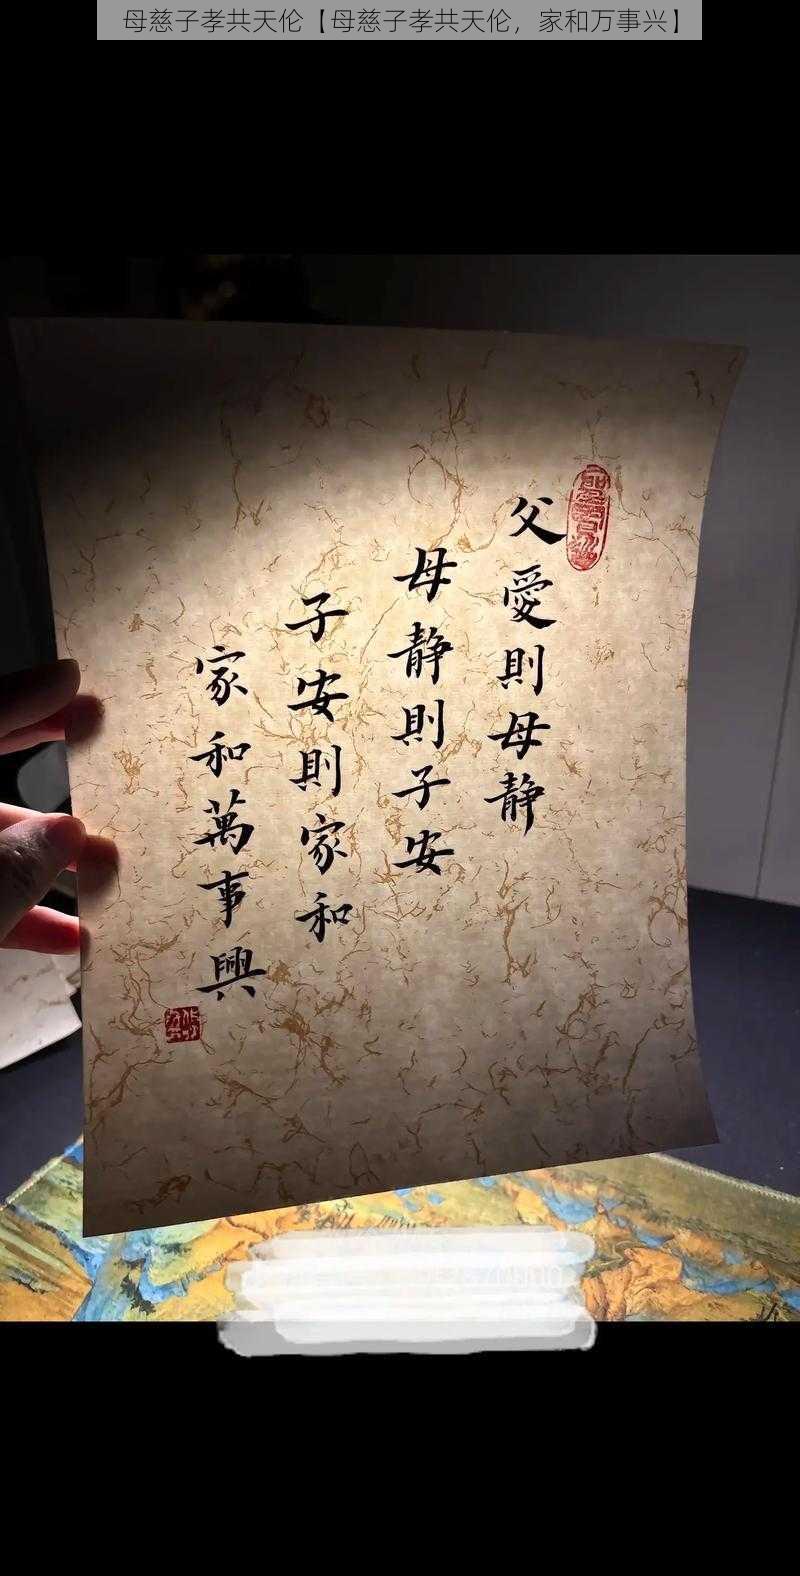 母慈子孝共天伦【母慈子孝共天伦，家和万事兴】
父愛則母静
母静則子安
子安則家和
家和萬事興